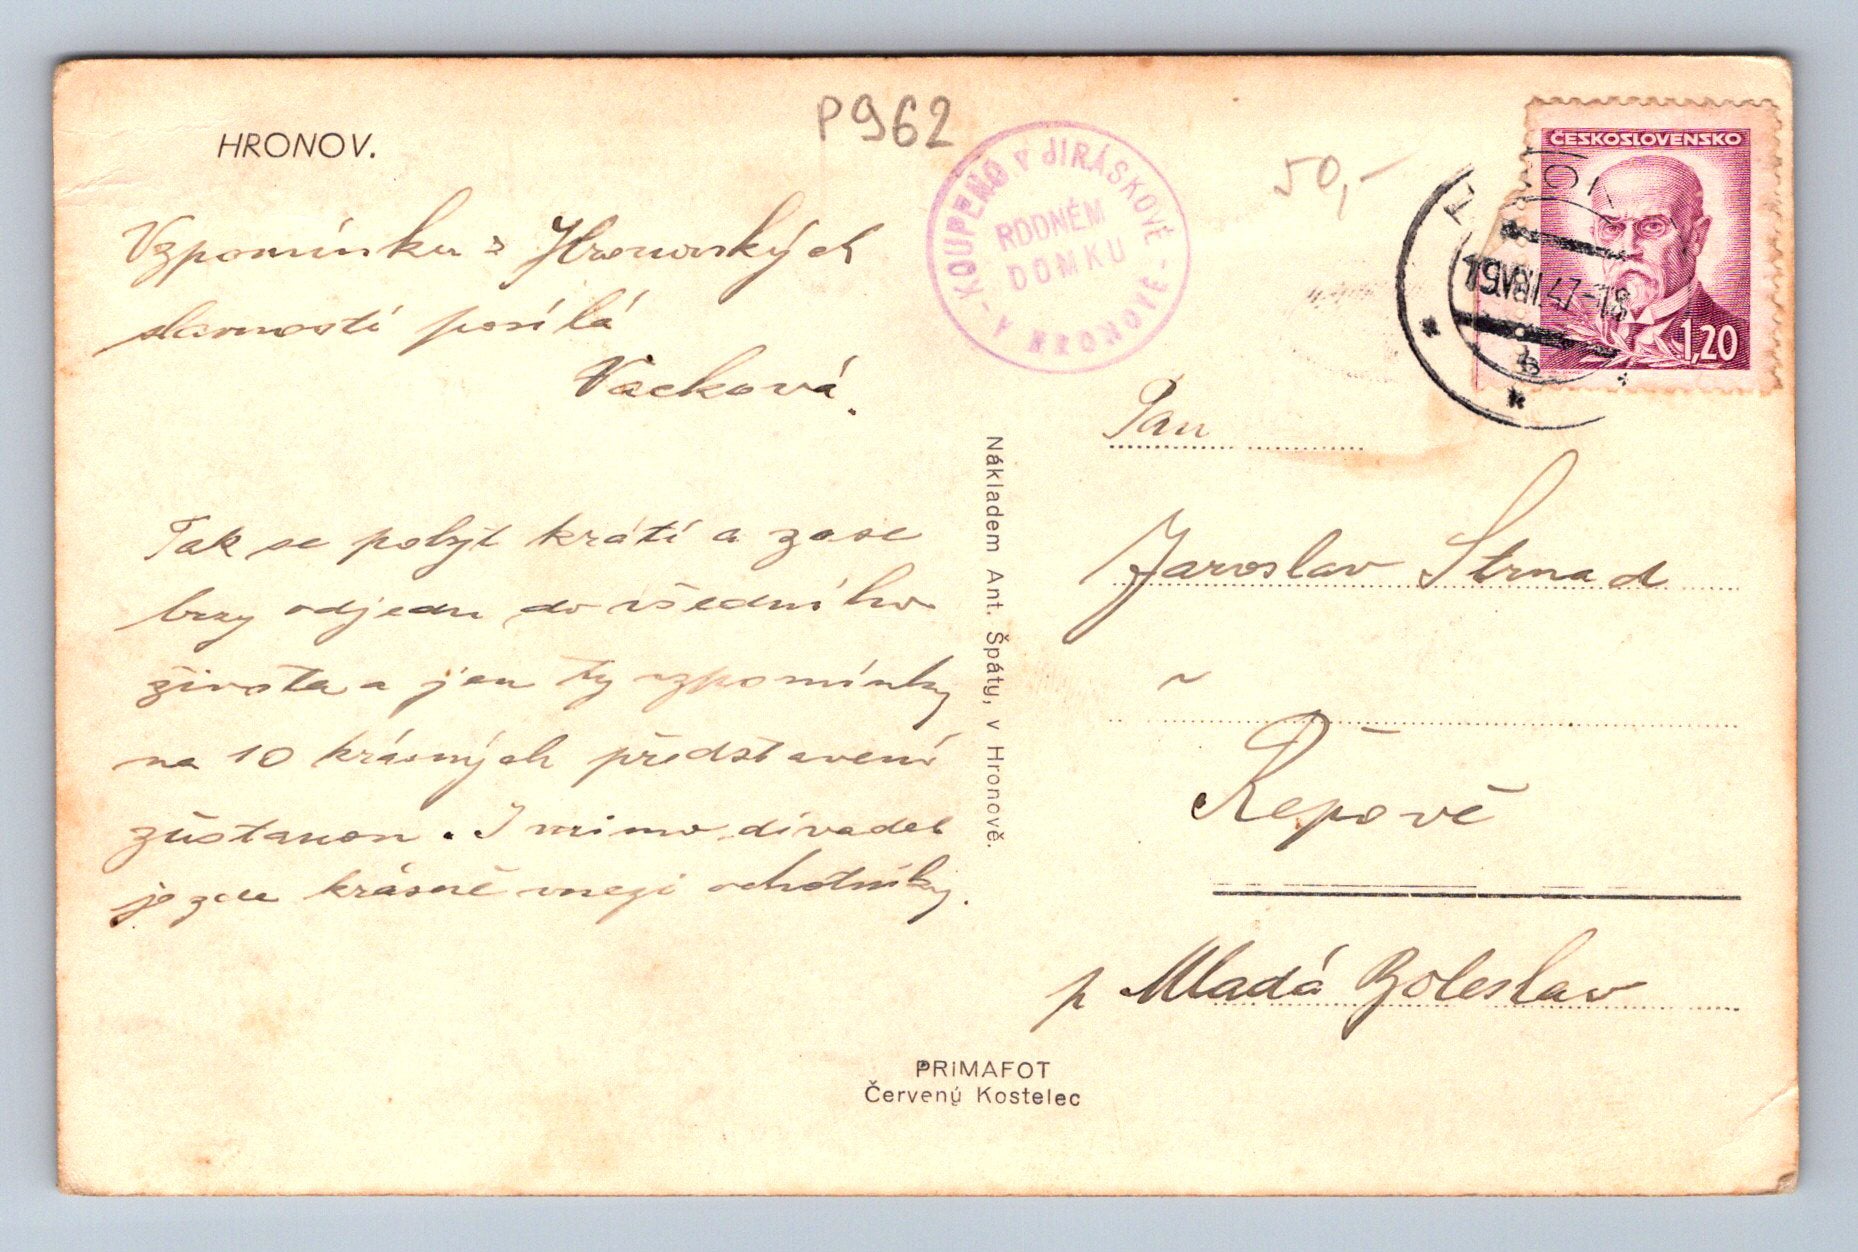 P962
HRONOV.
50,-
- KOUPENO V JIRÁSKOVĚ -
RODNÉM
DOMKU
V HRONOVĚ
ČESKOSLOVENSKO
1,20
Vzpomínku z Hronovských
slavností posílá
Vacková.
Tak se pobyt krátí a zase
brzy odjedu do všedního
života a jen ty vzpomínky
na 10 krásných představení
zůstanou. I mimo divadel
je zde krásně mezi ochotníky.
Nákladem Ant. Špáty, v Hronově.
Pan
Jaroslav Strnad
Řepově
p Mladá Boleslav
PRIMAFOT
Červený Kostelec